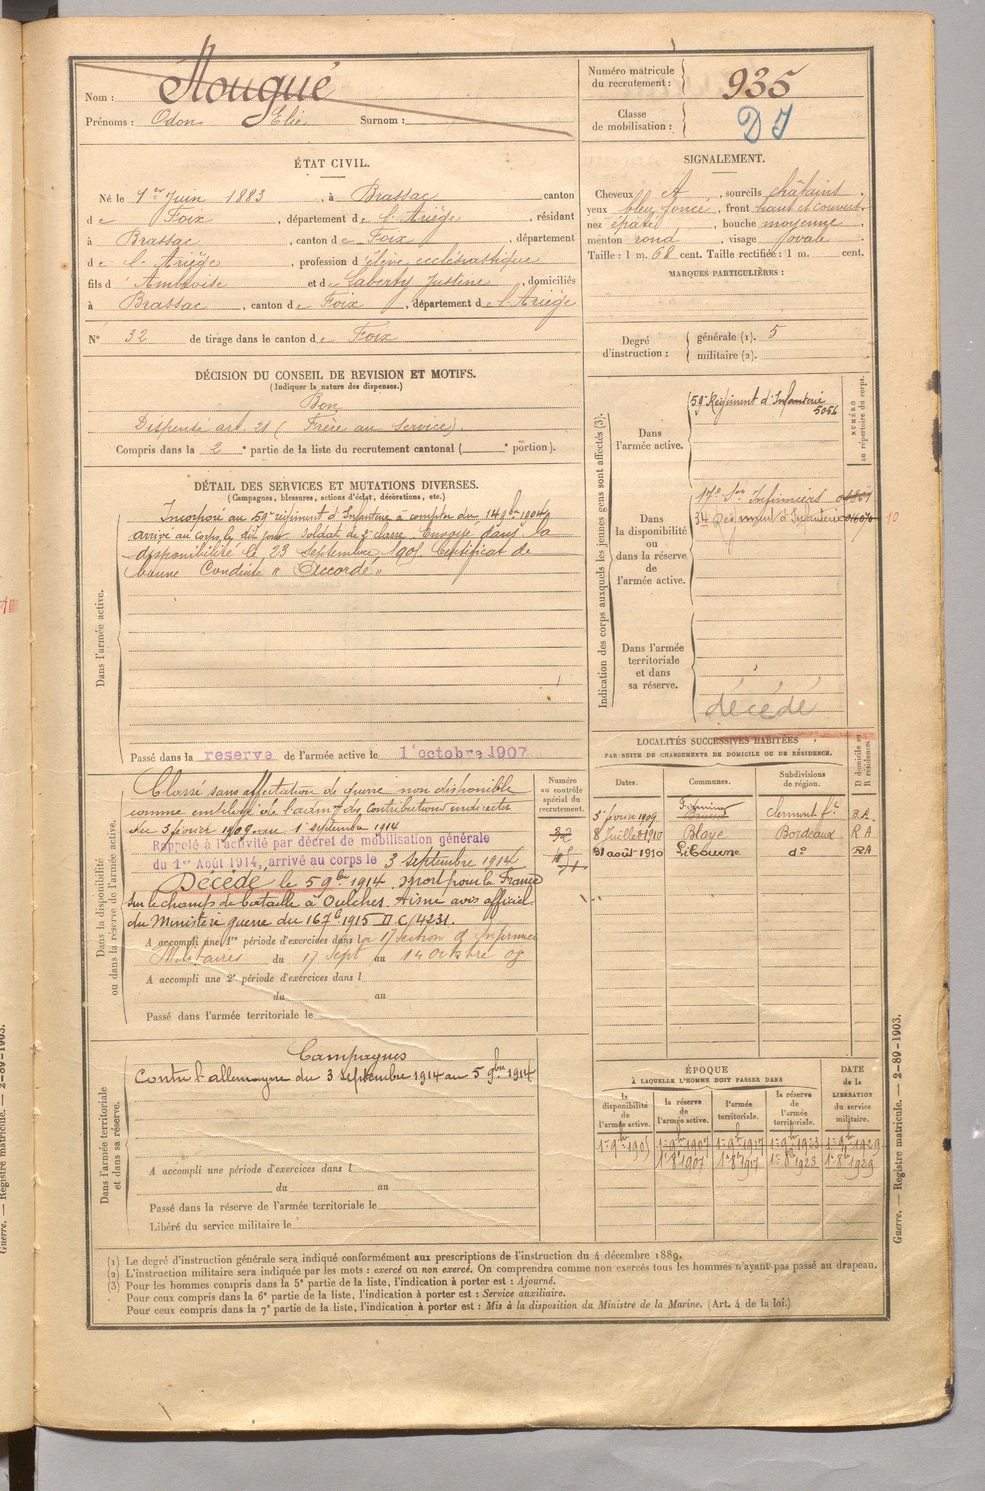 Nom : Rougué
Prénoms : Odon Elie Surnom :
Numéro matricule du recrutement : 935
Classe de mobilisation : D J
ÉTAT CIVIL.
Né le 1er Juin 1883, à Brassac canton
de Foix, département de l'Ariège, résidant
à Brassac, canton de Foix, département
de l'Ariège, profession d'élève ecclésiastique
fils d'Ambroise et de Laberty Justine, domiciliés
à Brassac, canton de Foix, département de l'Ariège
N° 32 de tirage dans le canton de Foix
SIGNALEMENT.
Cheveux et, sourcils châtains.
yeux bleu foncé, front haut et couvert
nez épaté, bouche moyenne
menton rond, visage ovale
Taille : 1 m. 68 cent. Taille rectifiée : 1 m. cent.
MARQUES PARTICULIÈRES :
Degré d'instruction : générale (1). 5
militaire (2).
DÉCISION DU CONSEIL DE REVISION ET MOTIFS.
(Indiquer la nature des dispenses.)
Bon
Dispensé art. 21 (Frère au Service).
Compris dans la 2e partie de la liste du recrutement cantonal ( e portion).
DÉTAIL DES SERVICES ET MUTATIONS DIVERSES.
(Campagnes, blessures, actions d'éclat, décorations, etc.)
Dans l'armée active.
Incorporé au 59e régiment d'Infanterie à compter du 14 9bre 1904
arrivé au corps le dit jour Soldat de 2e classe. Envoyé dans la
disponibilité le 23 Septembre 1905 Certificat de
bonne Conduite "Accordé"
Passé dans la reserve de l'armée active le 1 octobre 1907
Indication des corps auxquels les jeunes gens sont affectés (3).
Dans l'armée active.
59e Régiment d'Infanterie
5056
NUMÉRO au répertoire du corps.
Dans la disponibilité ou dans la réserve de l'armée active.
17e Son Infirmiers
34 Régiment d'Infanterie 10
Dans l'armée territoriale et dans sa réserve.
décédé
Dans la disponibilité ou dans la réserve de l'armée active.
Numéro au contrôle spécial du recrutement.
Classé sans affectation de guerre non disponible
comme employé de l'admon des contributions indirectes
du 3 février 1909 au 1er septembre 1914
Rappelé à l'activité par décret de mobilisation générale
du 1er Août 1914, arrivé au corps le 3 septembre 1914
Décédé le 5 9bre 1914 mort pour la France
sur le champ de bataille à Oulches Aisne avis officiel
du Ministère guerre du 16 7bre 1915 D C/4231.
A accompli une 1re période d'exercices dans la 17 Section d'Infirmiers
Militaires du 17 Sept au 14 Octobre 08
A accompli une 2e période d'exercices dans l
du au
Passé dans l'armée territoriale le
LOCALITÉS SUCCESSIVES HABITÉES
PAR SUITE DE CHANGEMENTS DE DOMICILE OU DE RÉSIDENCE.
Dates. Communes. Subdivisions de région. D domicile ou R résidences.
3 février 1909 Clermont fd R.A.
8 Juillet 1910 Blaye Bordeaux RA
31 août 1910 Libourne do RA
Dans l'armée territoriale et dans sa réserve.
Campagnes
Contre l'allemagne du 3 septembre 1914 au 5 9bre 1914
A accompli une période d'exercices dans l
du au
Passé dans la réserve de l'armée territoriale le
Libéré du service militaire le
ÉPOQUE
À LAQUELLE L'HOMME DOIT PASSER DANS
la disponibilité de l'armée active. la réserve de l'armée active. l'armée territoriale. la réserve de l'armée territoriale. DATE de la LIBÉRATION du service militaire.
1er 9bre 1905 1er 9bre 1907 1er 9bre 1917 1er 9bre 1923 1er 9bre 1929
1er 8bre 1907 1er 8bre 1917 1er 8bre 1923 1er 8bre 1929
(1) Le degré d'instruction générale sera indiqué conformément aux prescriptions de l'instruction du 4 décembre 1889.
(2) L'instruction militaire sera indiquée par les mots : exercé ou non exercé. On comprendra comme non exercés tous les hommes n'ayant pas passé au drapeau.
(3) Pour les hommes compris dans la 5e partie de la liste, l'indication à porter est : Ajourné.
Pour ceux compris dans la 6e partie de la liste, l'indication à porter est : Service auxiliaire.
Pour ceux compris dans la 7e partie de la liste, l'indication à porter est : Mis à la disposition du Ministre de la Marine. (Art. 4 de la loi.)
Guerre. — Registre matricule. — 2-89-1903.